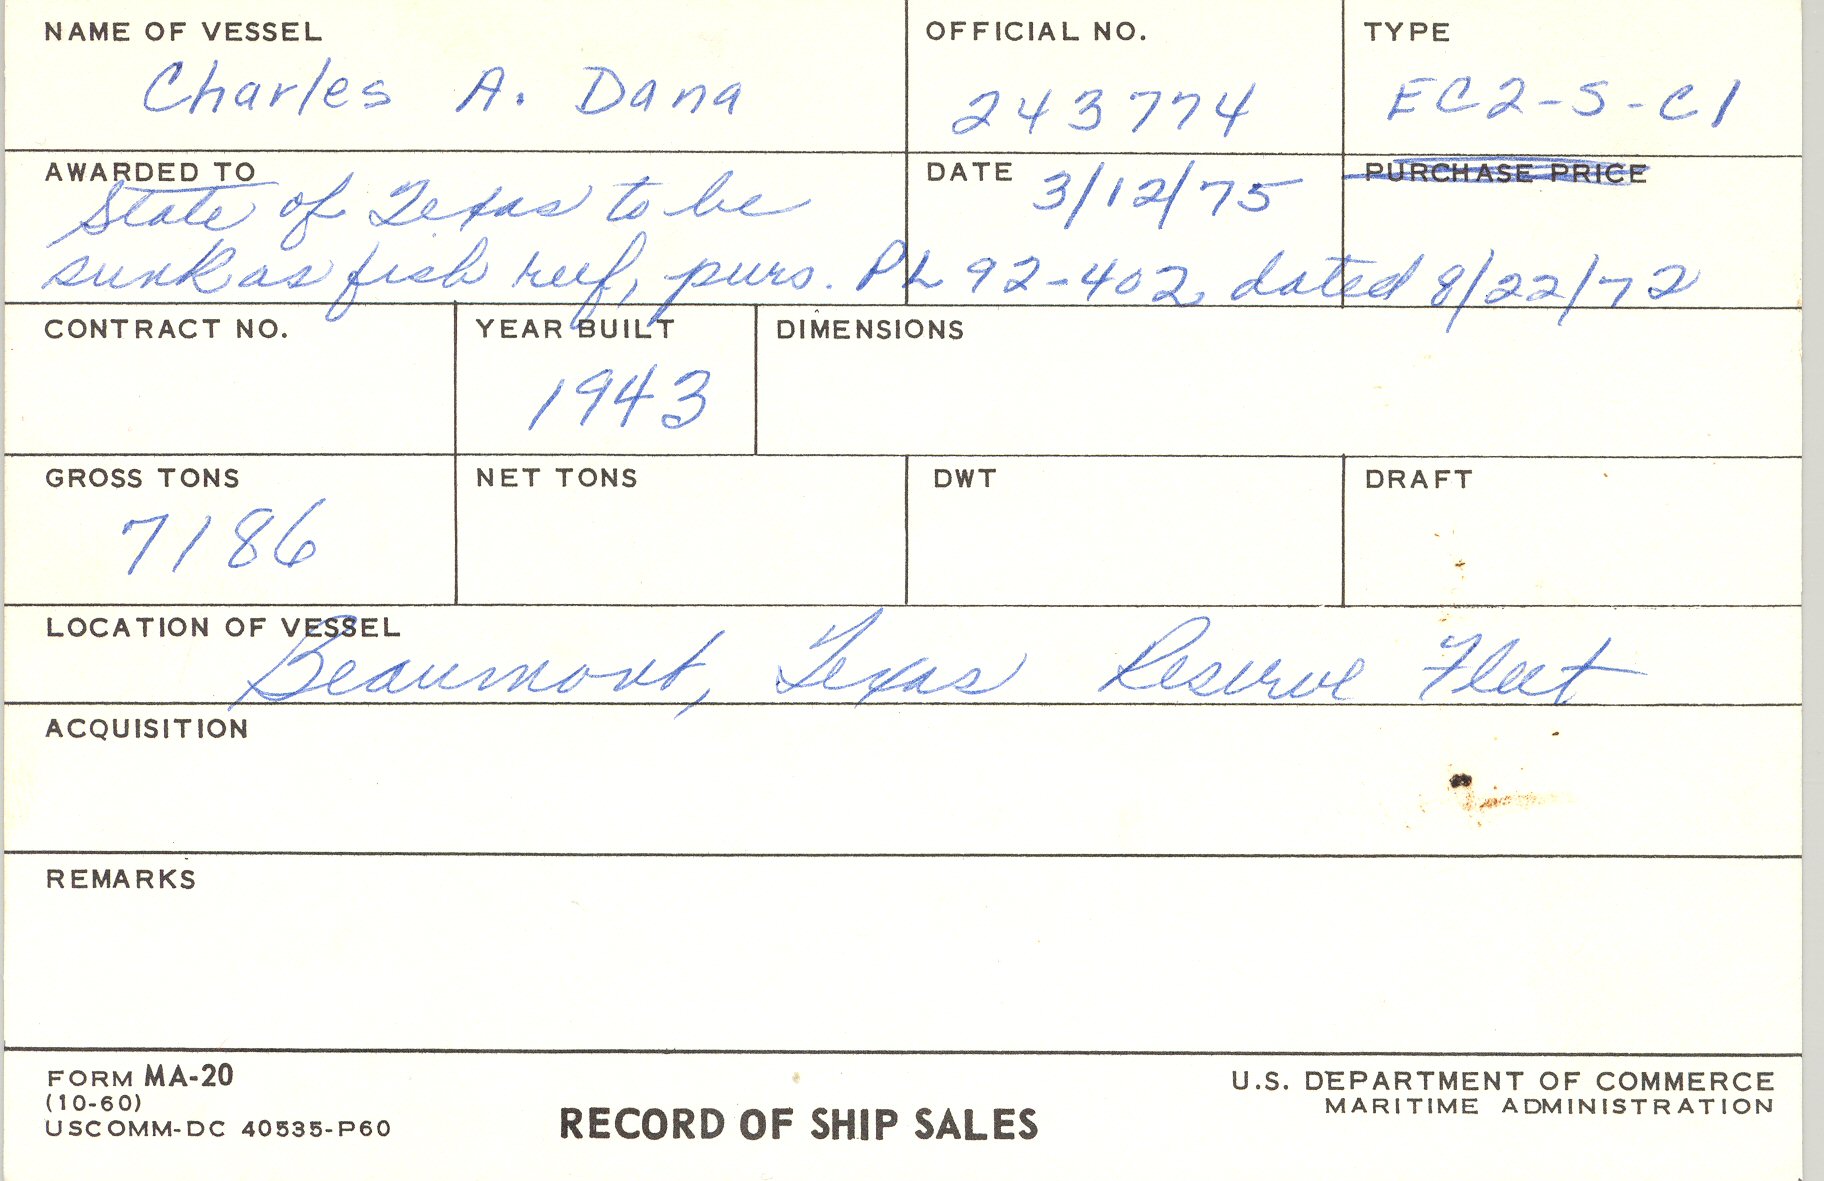 NAME OF VESSEL OFFICIAL NO. TYPE
Charles A. Dana 243774 EC2-S-C1
AWARDED TO DATE 3/12/75 PURCHASE PRICE
State of Texas to be
sunk as fish reef, purs. PL 92-402 dated 8/22/72
CONTRACT NO. YEAR BUILT DIMENSIONS
1943
GROSS TONS NET TONS DWT DRAFT
7186
LOCATION OF VESSEL
Beaumont, Texas Reserve Fleet
ACQUISITION
REMARKS
FORM MA-20
(10-60)
USCOMM-DC 40535-P60
RECORD OF SHIP SALES
U.S. DEPARTMENT OF COMMERCE
MARITIME ADMINISTRATION